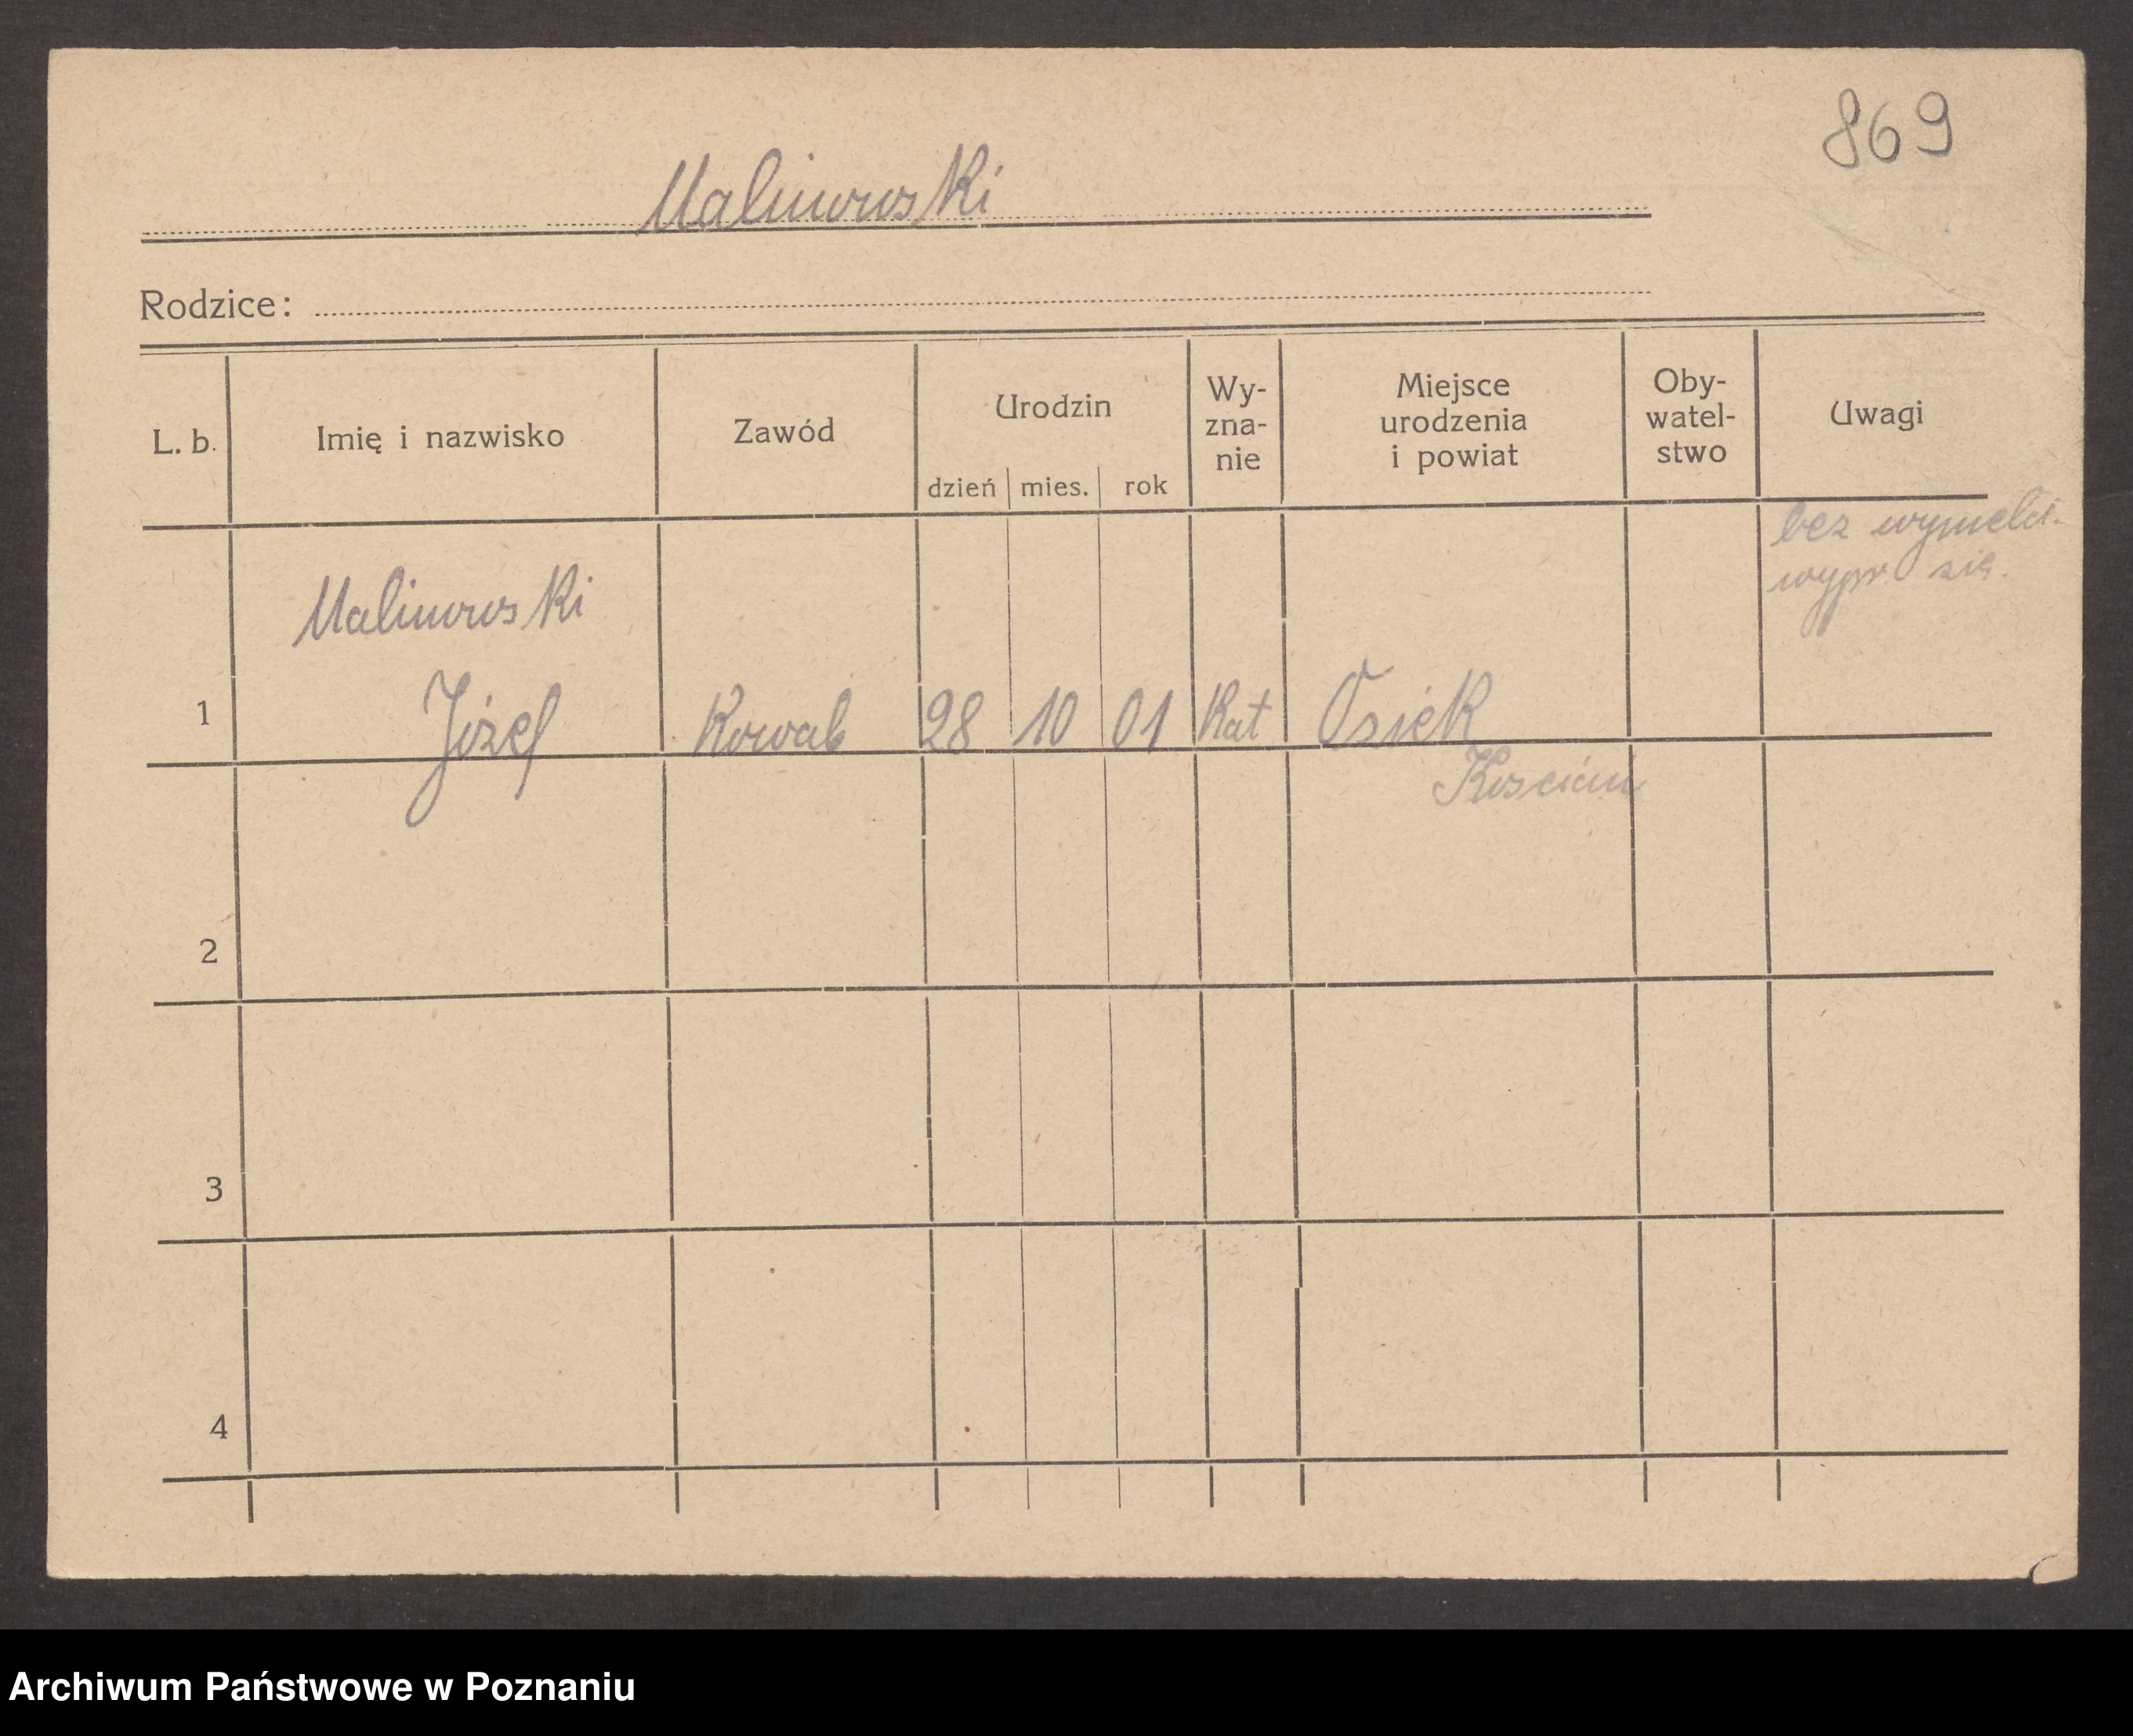 869
Malinowski
Rodzice:
L. b. Imię i nazwisko Zawód Urodzin dzień mies. rok Wy-zna-nie Miejsce urodzenia i powiat Oby-watel-stwo Uwagi
bez wymeld.
wypr. się.
Malinowski
1 Józef Kowal 28 10 01 Kat Osiek
Kościan
2
3
4
Archiwum Państwowe w Poznaniu